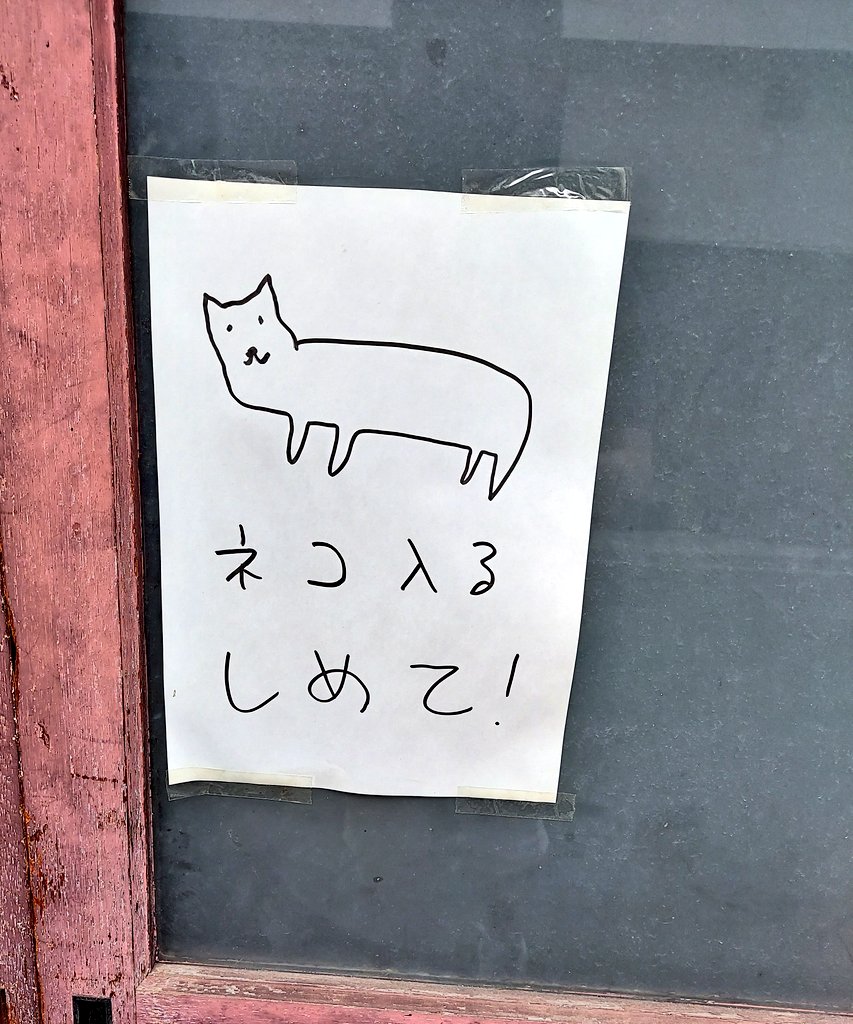 ネコ入る
しめて!